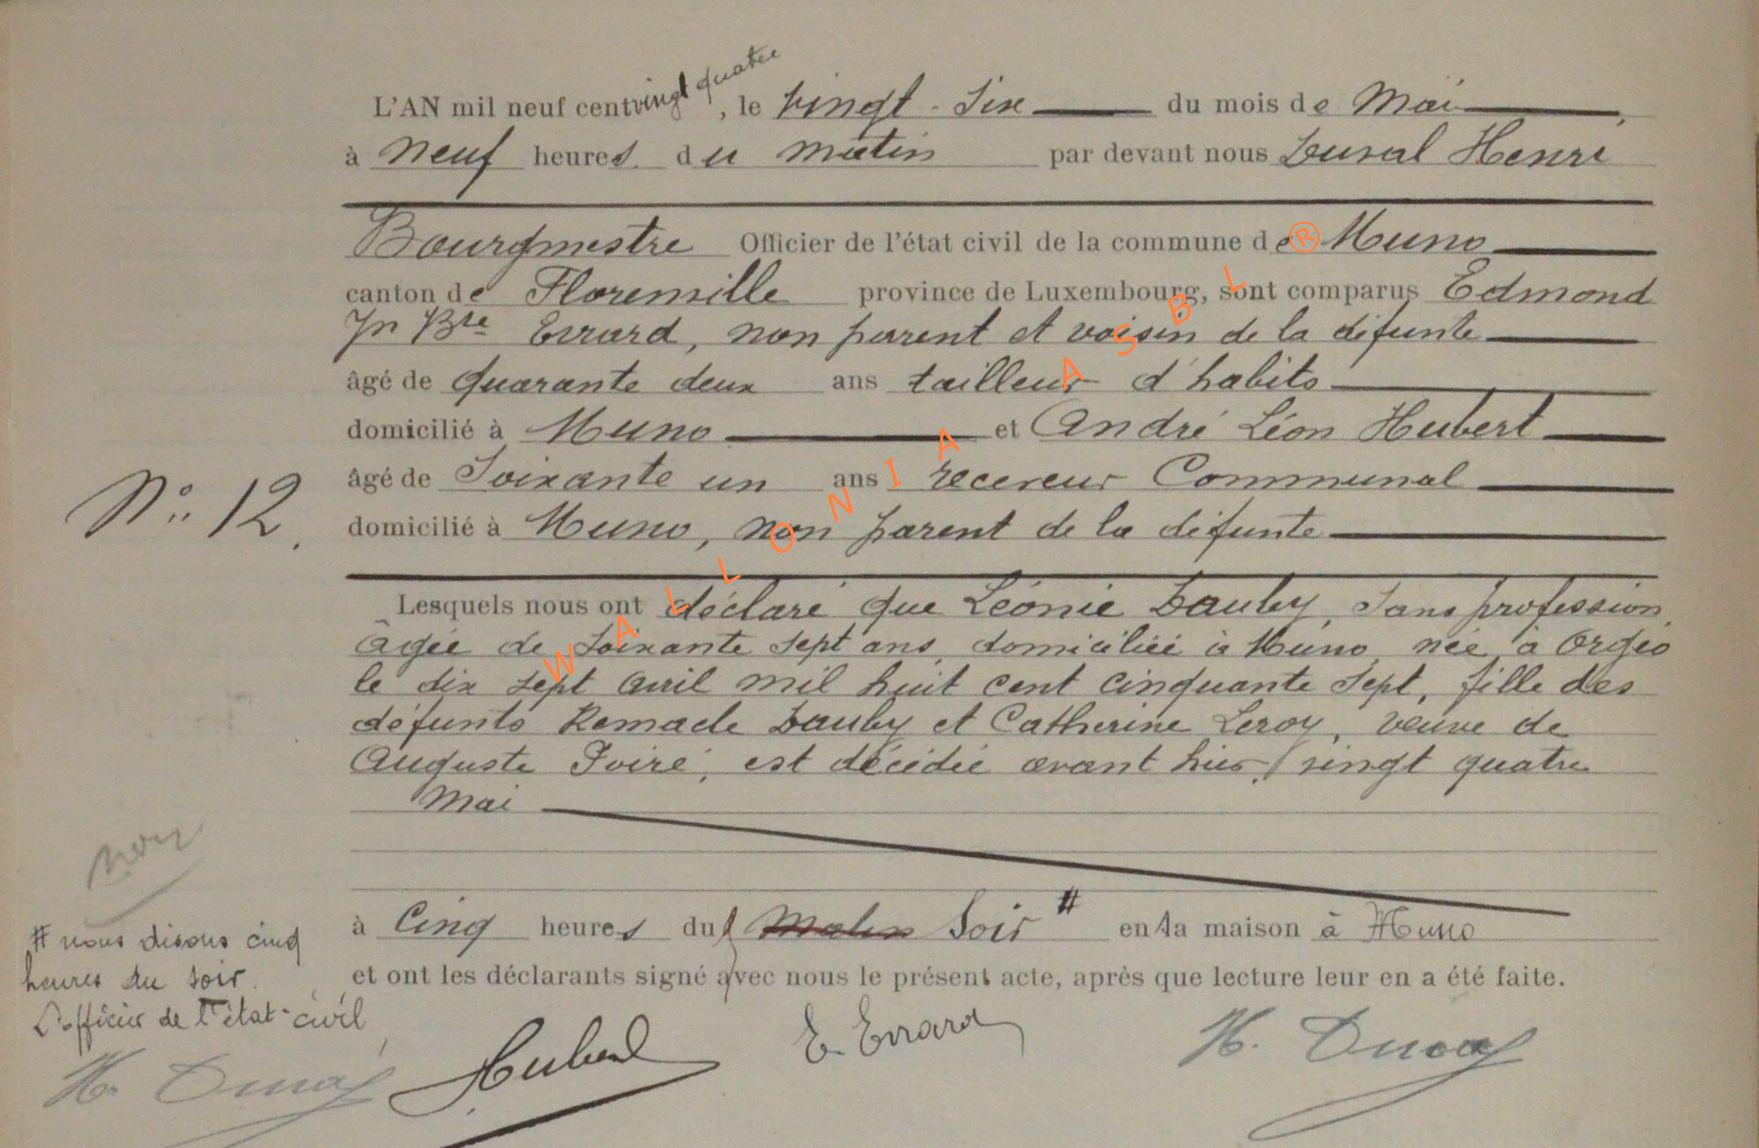 L'AN mil neuf cent vingt quatre, le vingt-six du mois de Mai,
à neuf heures du matin par devant nous Duval Henri
Bourgmestre Officier de l'état civil de la commune de Muno
canton de Florenville province de Luxembourg, sont comparus Edmond
Jn Bte Errard, non parent et voisin de la défunte
âgé de quarante deux ans tailleur d'habits
domicilié à Muno et André Léon Hubert
âgé de Soixante un ans receveur Communal
N° 12.
domicilié à Muno, non parent de la défunte
Lesquels nous ont déclaré que Léonie Dauby, sans profession,
âgée de soixante sept ans, domiciliée à Muno, née à Orgeo
le dix sept avril mil huit cent cinquante sept, fille des
défunts Remacle Dauby et Catherine Leroy, veuve de
Auguste Poiré, est décédée avant hier, vingt quatre
mai
à Cinq heures du Matin Soir # en la maison à Muno
et ont les déclarants signé avec nous le présent acte, après que lecture leur en a été faite.
# nous disons cinq
heures du soir.
L'officier de l'état-civil
H. Duval
Hubert
E. Errard
H. Duval
WALLONIA ASBL ®